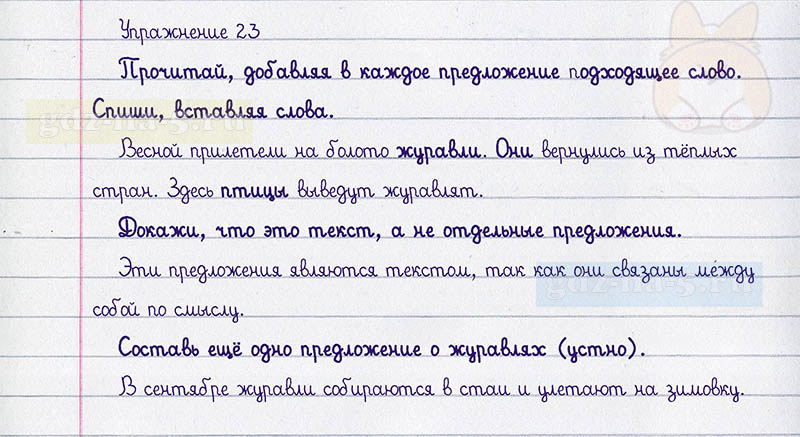 Упражнение 23
Прочитай, добавляя в каждое предложение подходящее слово.
Спиши, вставляя слова.
Весной прилетели на болото журавли. Они вернулись из тёплых
стран. Здесь птицы выведут журавлят.
Докажи, что это текст, а не отдельные предложения.
Эти предложения являются текстом, так как они связаны ме́жду
собой по смыслу.
Составь ещё одно предложение о журавлях (устно).
В сентябре журавли собираются в стаи и улетают на зимовку.
gdz-na-5.ru
gdz-na-5.ru